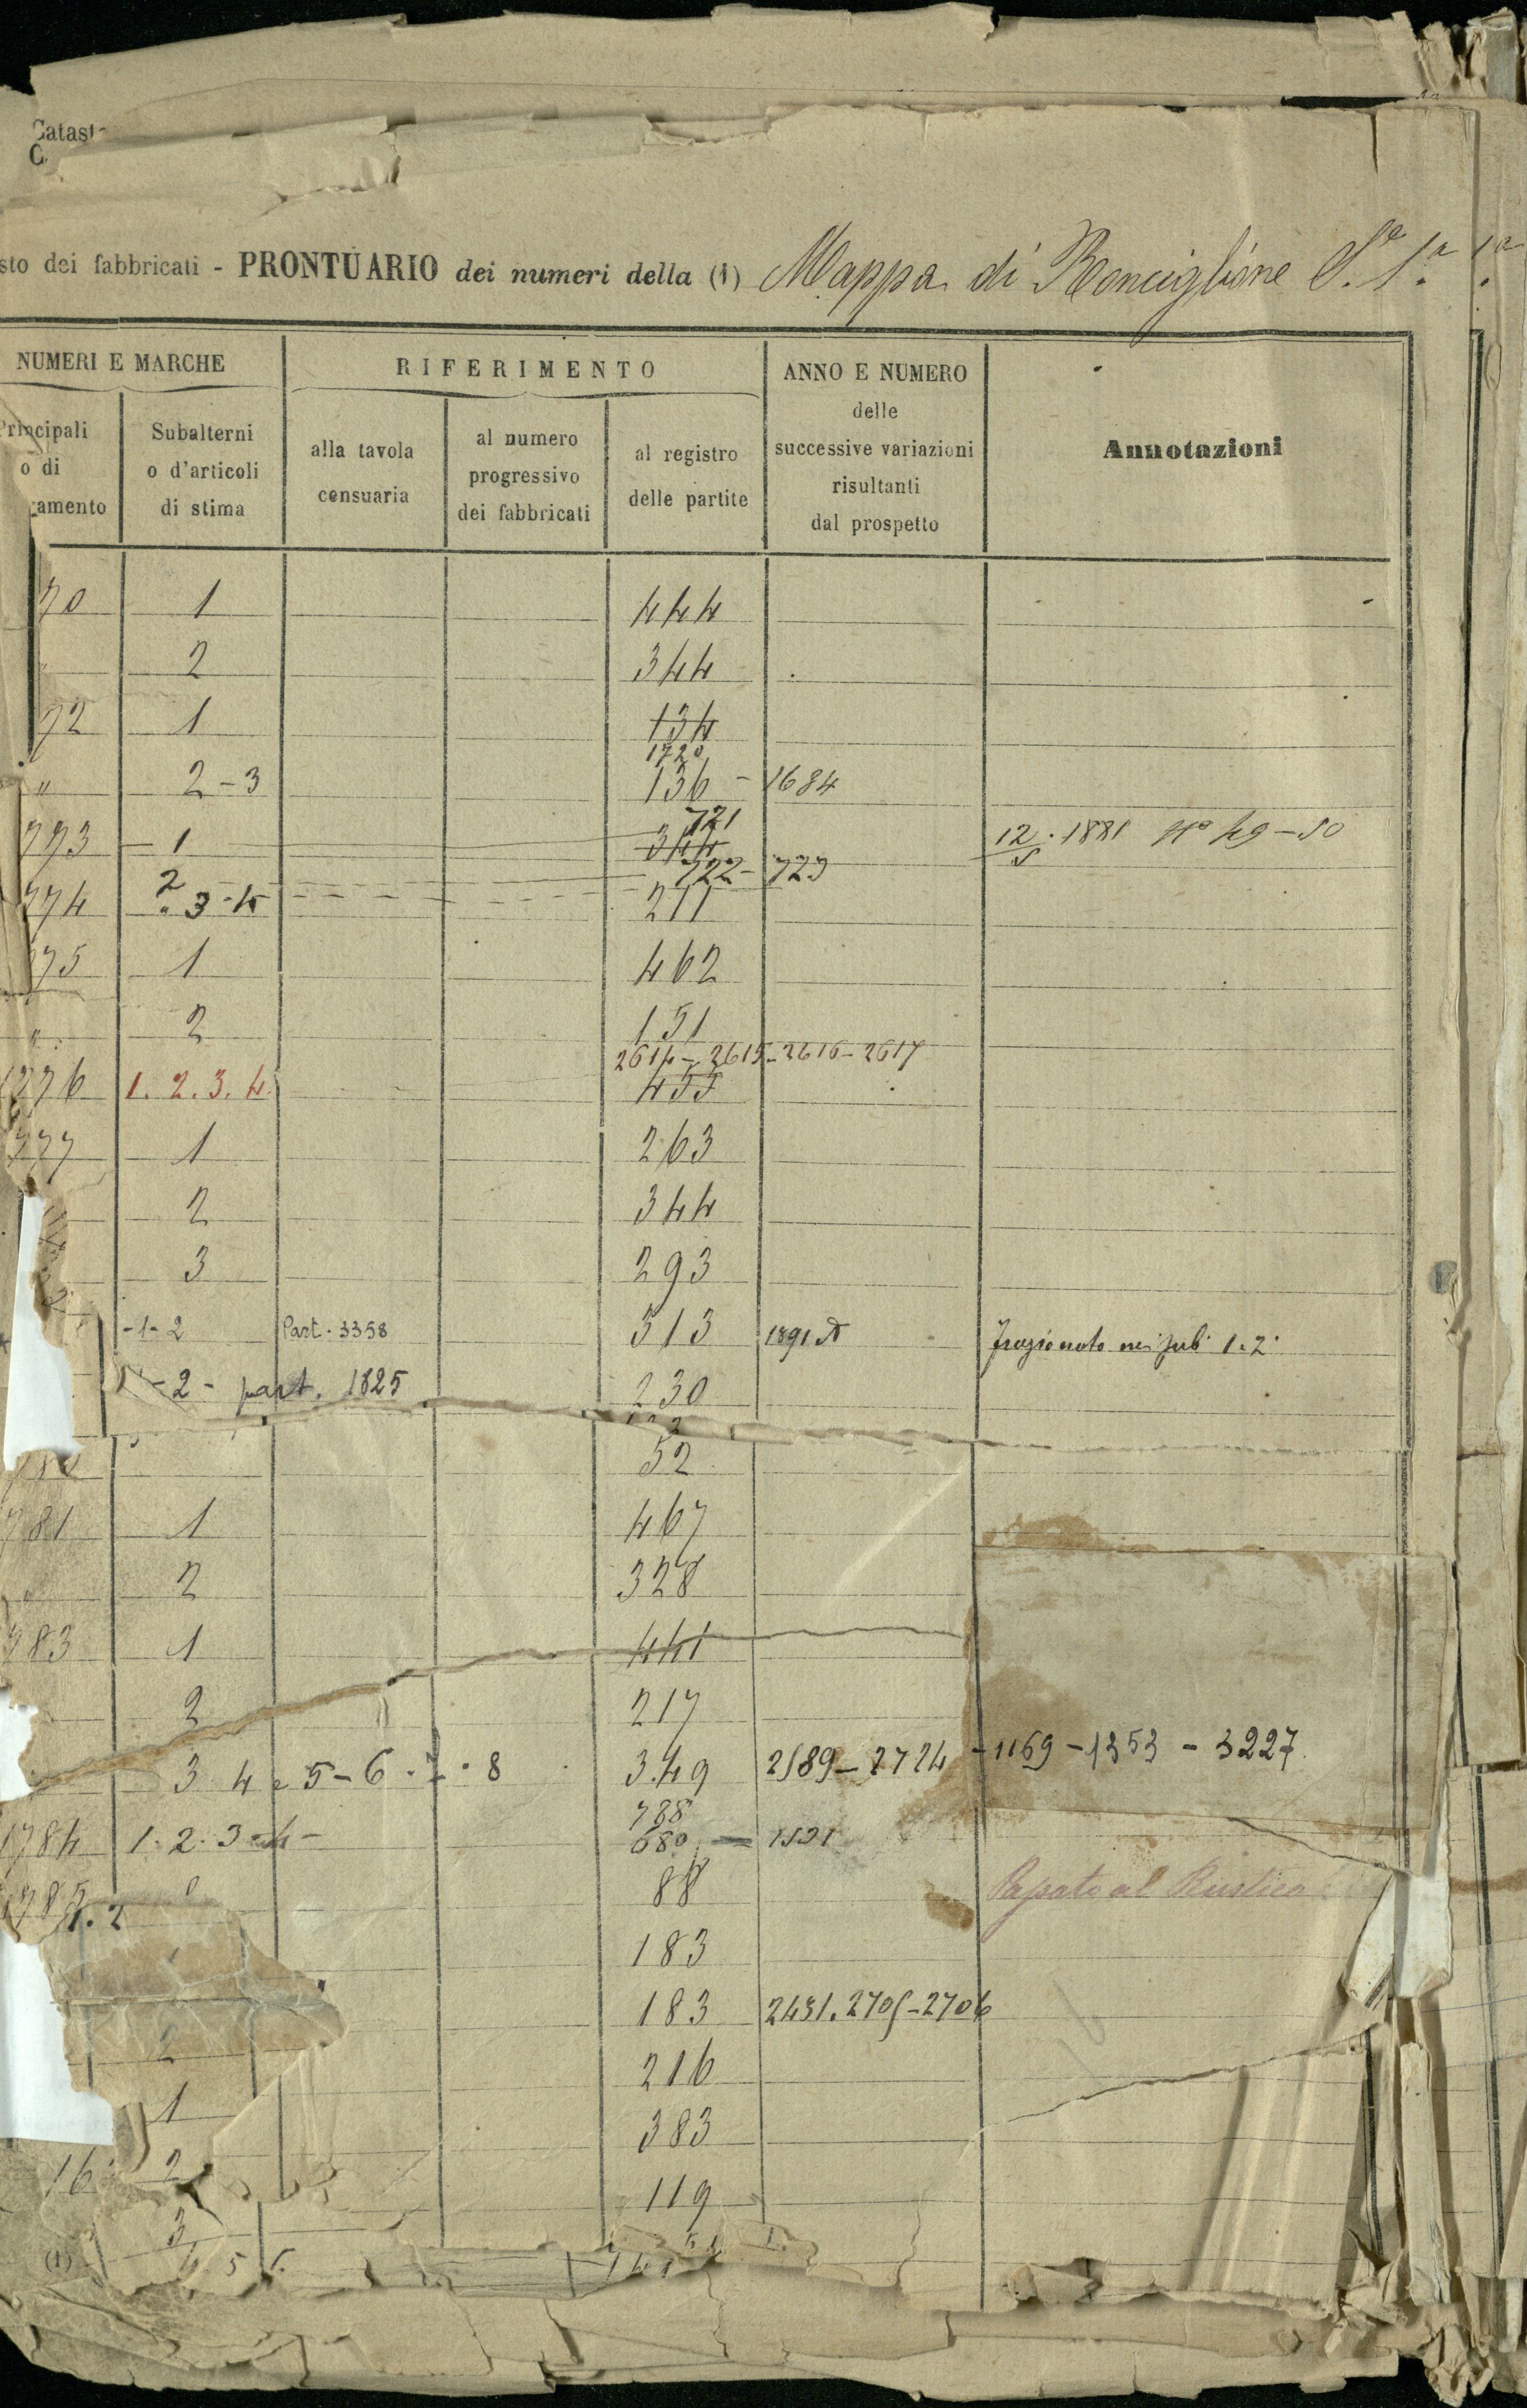 Catast
C
sto dei fabbricati - PRONTUARIO dei numeri della (1) Mappa di Ronciglione S.e 1.a 1.a
NUMERI E MARCHE RIFERIMENTO ANNO E NUMERO delle successive variazioni risultanti dal prospetto Annotazioni
Principali o di amento Subalterni o d'articoli di stima alla tavola censuaria al numero progressivo dei fabbricati al registro delle partite
70 1 444
2 344
72 1 134
1720
" 2-3 136 - 1684
721
773 1 344 12/5 . 1881 N° 49-50
2 722-723
774 " 3-4 211
775 1 462
" 2 151
2614-2615-2616-2617
1776 1. 2. 3. 4. 455
777 1 263
2 344
3 293
-1-2 Part. 3358 313 1891 Frazionato nei sub. 1.2.
-2- part. 1825 230
52
781 1 467
" 2 328
783 1 441
2 217
3 4 e 5-6.7.8 349 2589-2724 -1169-1353-3227
788
1784 1.2.3-4- 680 - 1531
1785 1.2 88 Passato al Rustico
183
183 2431.2705-2706
2 216
1 383
16 2 119
3
(1) 4 5 6